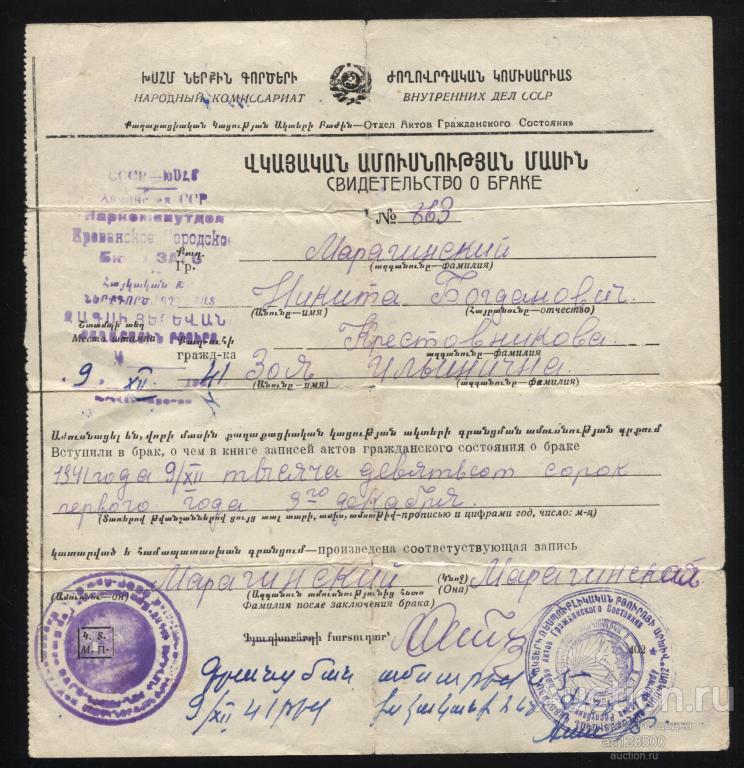 ԽՍՀՄ ՆԵՐՔԻՆ ԳՈՐԾԵՐԻ ԺՈՂՈՎՐԴԱԿԱՆ ԿՈՄԻՍԱՐԻԱՏ
НАРОДНЫЙ КОМИССАРИАТ ВНУТРЕННИХ ДЕЛ СССР
Քաղաքացիական Կացության Ակտերի Բաժին—Отдел Актов Гражданского Состояния
ՎԿԱՅԱԿԱՆ ԱՄՈՒՍՆՈՒԹՅԱՆ ՄԱՍԻՆ
СВИДЕТЕЛЬСТВО О БРАКЕ
СССР—ԽՍՀՄ
ССР
Наркомвнутдел
Ереванское Городское
Бюро ЗАГС
Հայկական
№ 663
Քաղ.
Гр. Марагинский
(ազգանունը—фамилия)
Никита Богданович.
(Անունը—имя) (Հայրանունը—отчество)
Շտամպի տեղ
Места штампа
Քաղ-ուհի
гражд-ка Крестовникова.
ազգանունը—фамилия
Зоя Ильинична.
(Անունը—имя) (ազգանունը—фамилия)
9 XII 41
Ամուսնացել են, վորի մասին քաղաքացիական կացության ակտերի գրանցման ամուսնության գրքում
Вступили в брак, о чем в книге записей актов гражданского состояния о браке
1941 года 9/XII тысяча девятьсот сорок
первого года 9го декабря.
(Տառերով թվանշաններով ցույց տալ տարի, ամիս, ամսաթիվ-прописью и цифрами год, число: м-ц)
կատարված է համապատասխան գրանցում—произведена соответствующая запись
Марагинский (Կնոջ) Марагинская
(Ամուսնու—он) (Ազգանուն ամուսնությունից հետո (Она)
Фамилия после заключения брака)
Կ. Տ.
М. П.
քարտուղար՝
402
9/XII 41
auction.ru
площадка
aa128500
auction.ru